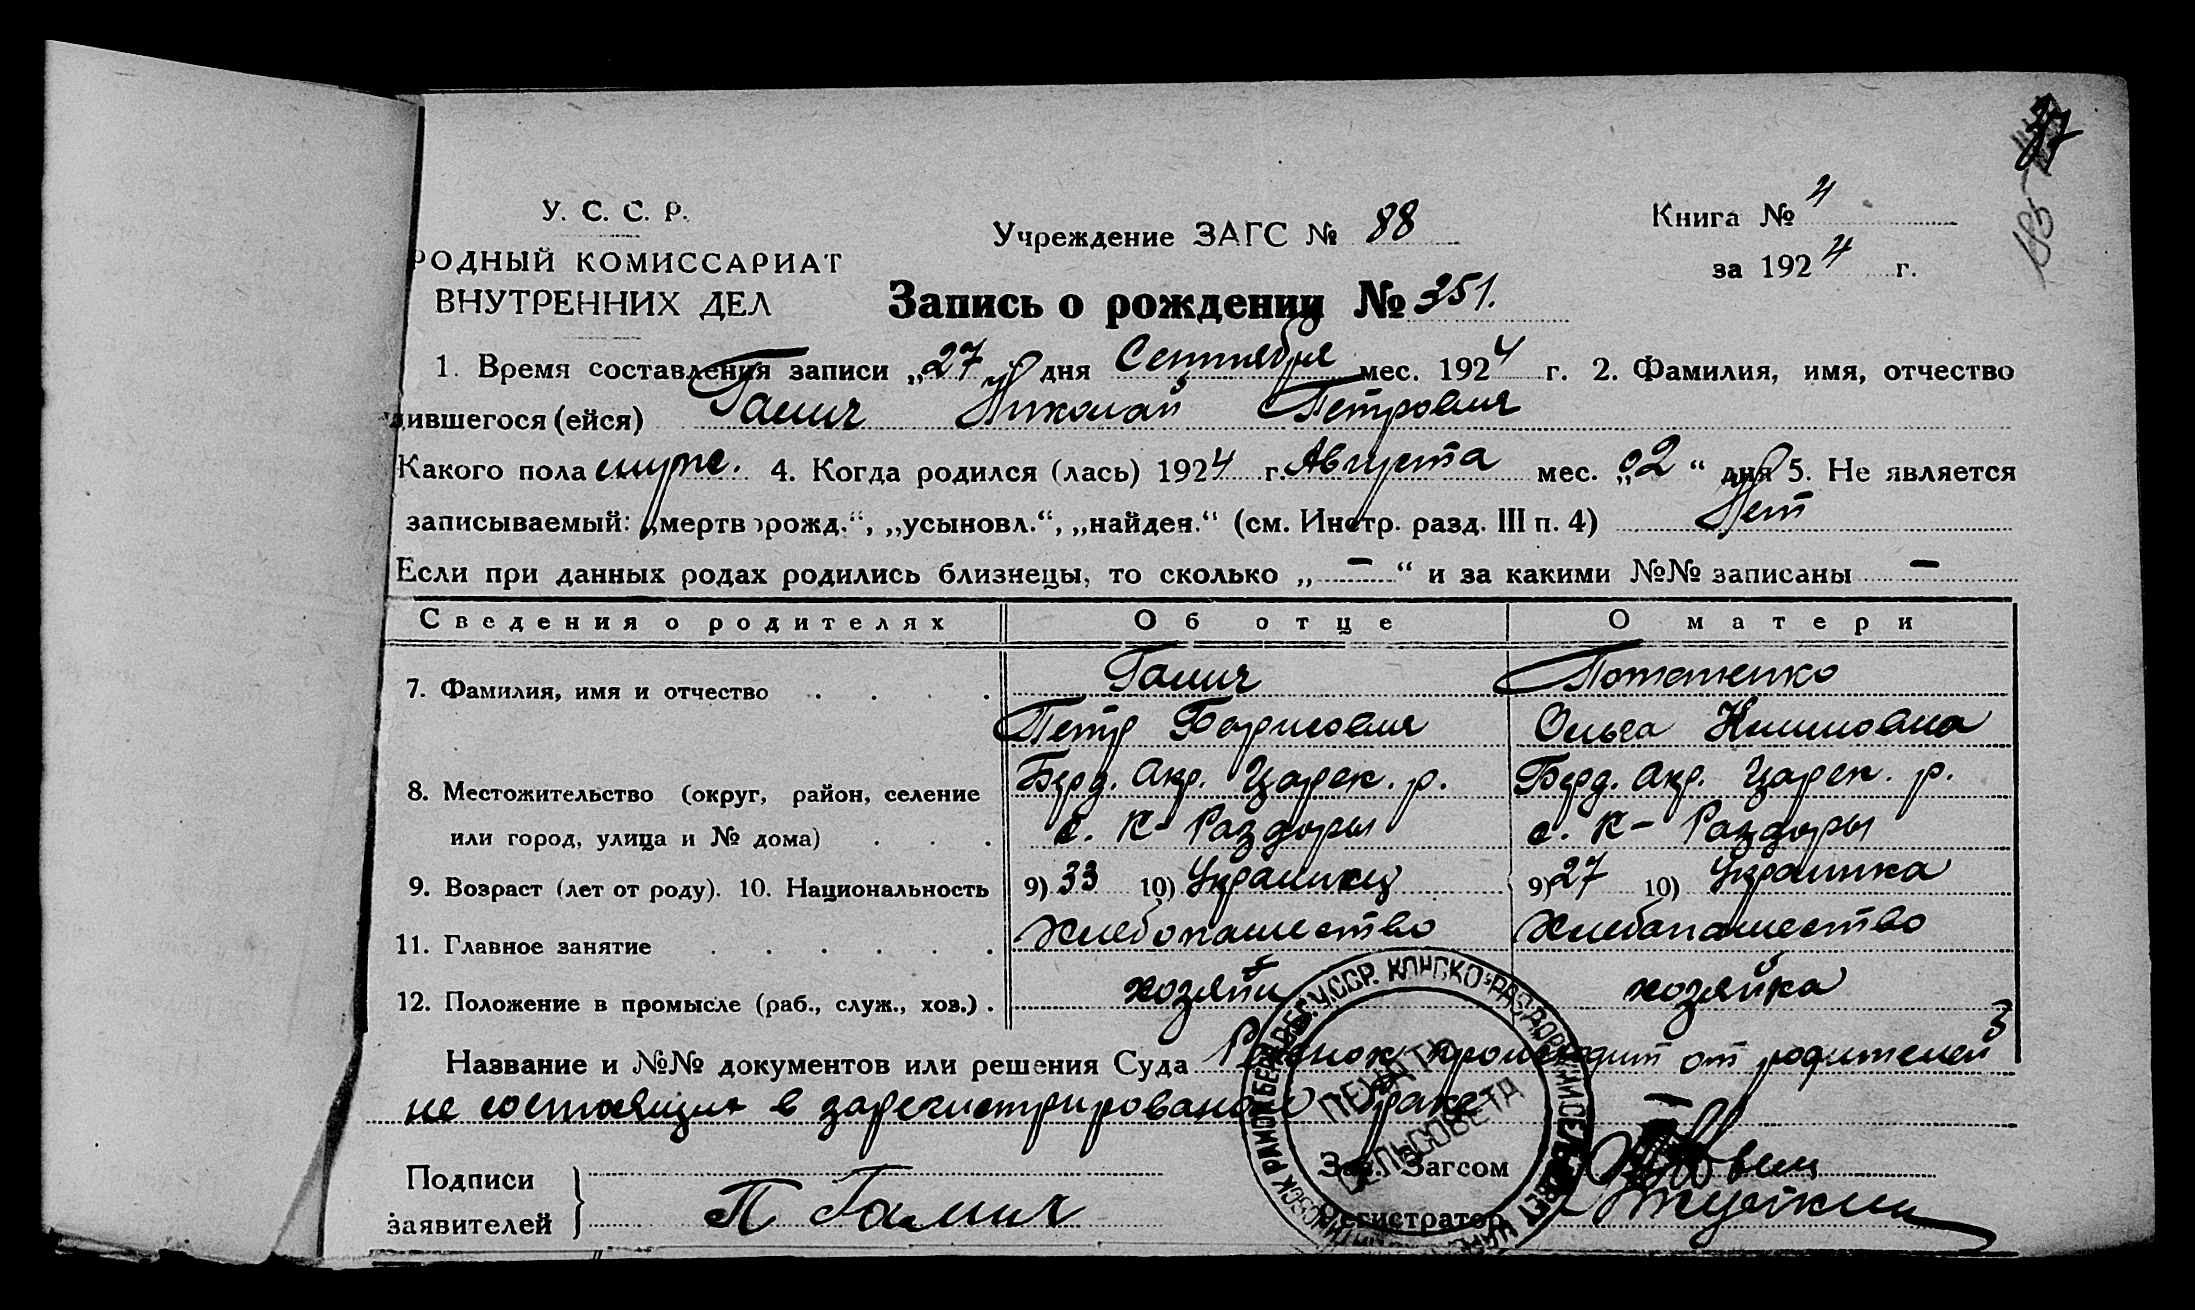 У. С. С. Р.
РОДНЫЙ КОМИССАРИАТ
ВНУТРЕННИХ ДЕЛ
Учреждение ЗАГС № 88
Книга № 4
за 1924 г.
Запись о рождении № 351.
1. Время составления записи „27 дня Сентября мес. 1924 г. 2. Фамилия, имя, отчество
дившегося (ейся) Галич Николай Петрович
Какого пола муж. 4. Когда родился (лась) 1924 г. Августа мес. „2 “ дня 5. Не является
записываемый: „мертворожд.“, „усыновл.“, „найден.“ (см. Инстр. разд. III п. 4) Нет
Если при данных родах родились близнецы, то сколько „ - “ и за какими №№ записаны -
Сведения о родителях Об отце О матери
7. Фамилия, имя и отчество Галич Потапенко
Петр Борисович Ольга
8. Местожительство (округ, район, селение Берд. Окр. Царек. р. Берд. Окр. Царек. р.
или город, улица и № дома) с. К-Раздоры с. К-Раздоры
9. Возраст (лет от роду). 10. Национальность 9) 33 10) Украинец 9) 27 10) Украинка
11. Главное занятие Хлебопашество Хлебопашество
12. Положение в промысле (раб., служ., хоз.) . хозяин хозяйка
Название и №№ документов или решения Суда Ребенок происходит от родителей
не состоящих в зарегистрированом браке
Подписи
заявителей П Галич
Зав. Загсом
Регистратор
У.ССР. КОНСКО-РАЗДОРСКИЙ СЕЛЬСОВЕТ
ПЕЧАТЬ
СЕЛЬСОВЕТА